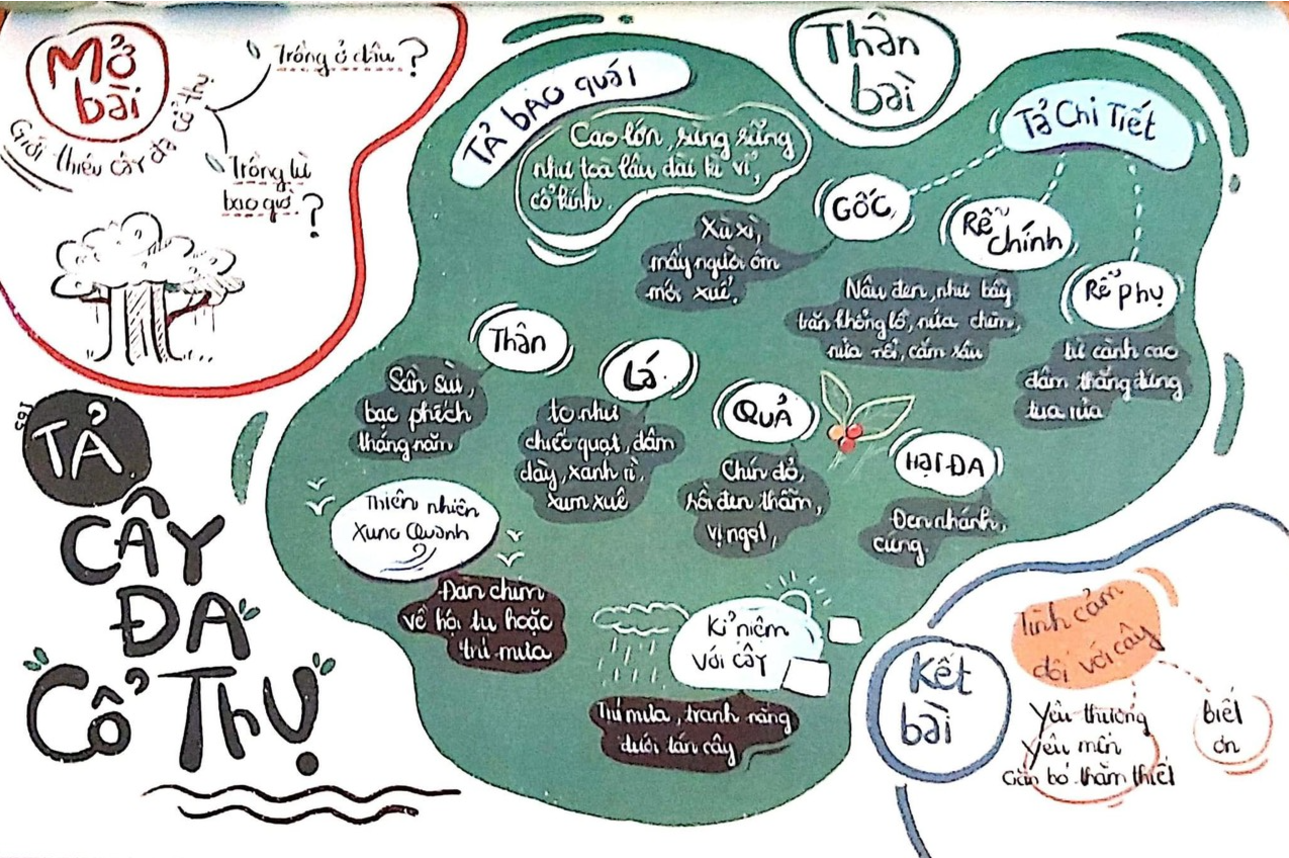 Mở
bài
Giới thiệu cây đa cổ thụ
Trồng ở đâu?
Trồng từ
bao giờ?
TẢ
CÂY
ĐA
Cổ Thụ
Thân
bài
TẢ BAO QUÁT
Cao lớn, sừng sững
như toà lâu đài kì vĩ,
cổ kính.
Tả Chi Tiết
GỐC
Xù xì,
mấy người ôm
mới xuể.
Rễ
chính
Nâu đen, như bầy
trăn khổng lồ, nửa chìm,
nửa nổi, cắm sâu
Rễ phụ
từ cành cao
đâm thẳng đứng
tua rủa
Thân
Sần sùi,
bạc phếch
tháng năm
Lá
to như
chiếc quạt, đậm
dày, xanh rì,
xum xuê
QUẢ
Chín đỏ,
rồi đen thẫm,
vị ngọt,
HẠT ĐA
Đen nhánh,
cứng.
Thiên nhiên
Xung Quanh
Đàn chim
về hội tụ hoặc
trú mưa
Kỉ niệm
với cây
Trú mưa, tránh nắng
dưới tán cây
Kết
bài
Tình cảm
đối với cây
Yêu thương
Yêu mến
Gắn bó thắm thiết
biết
ơn